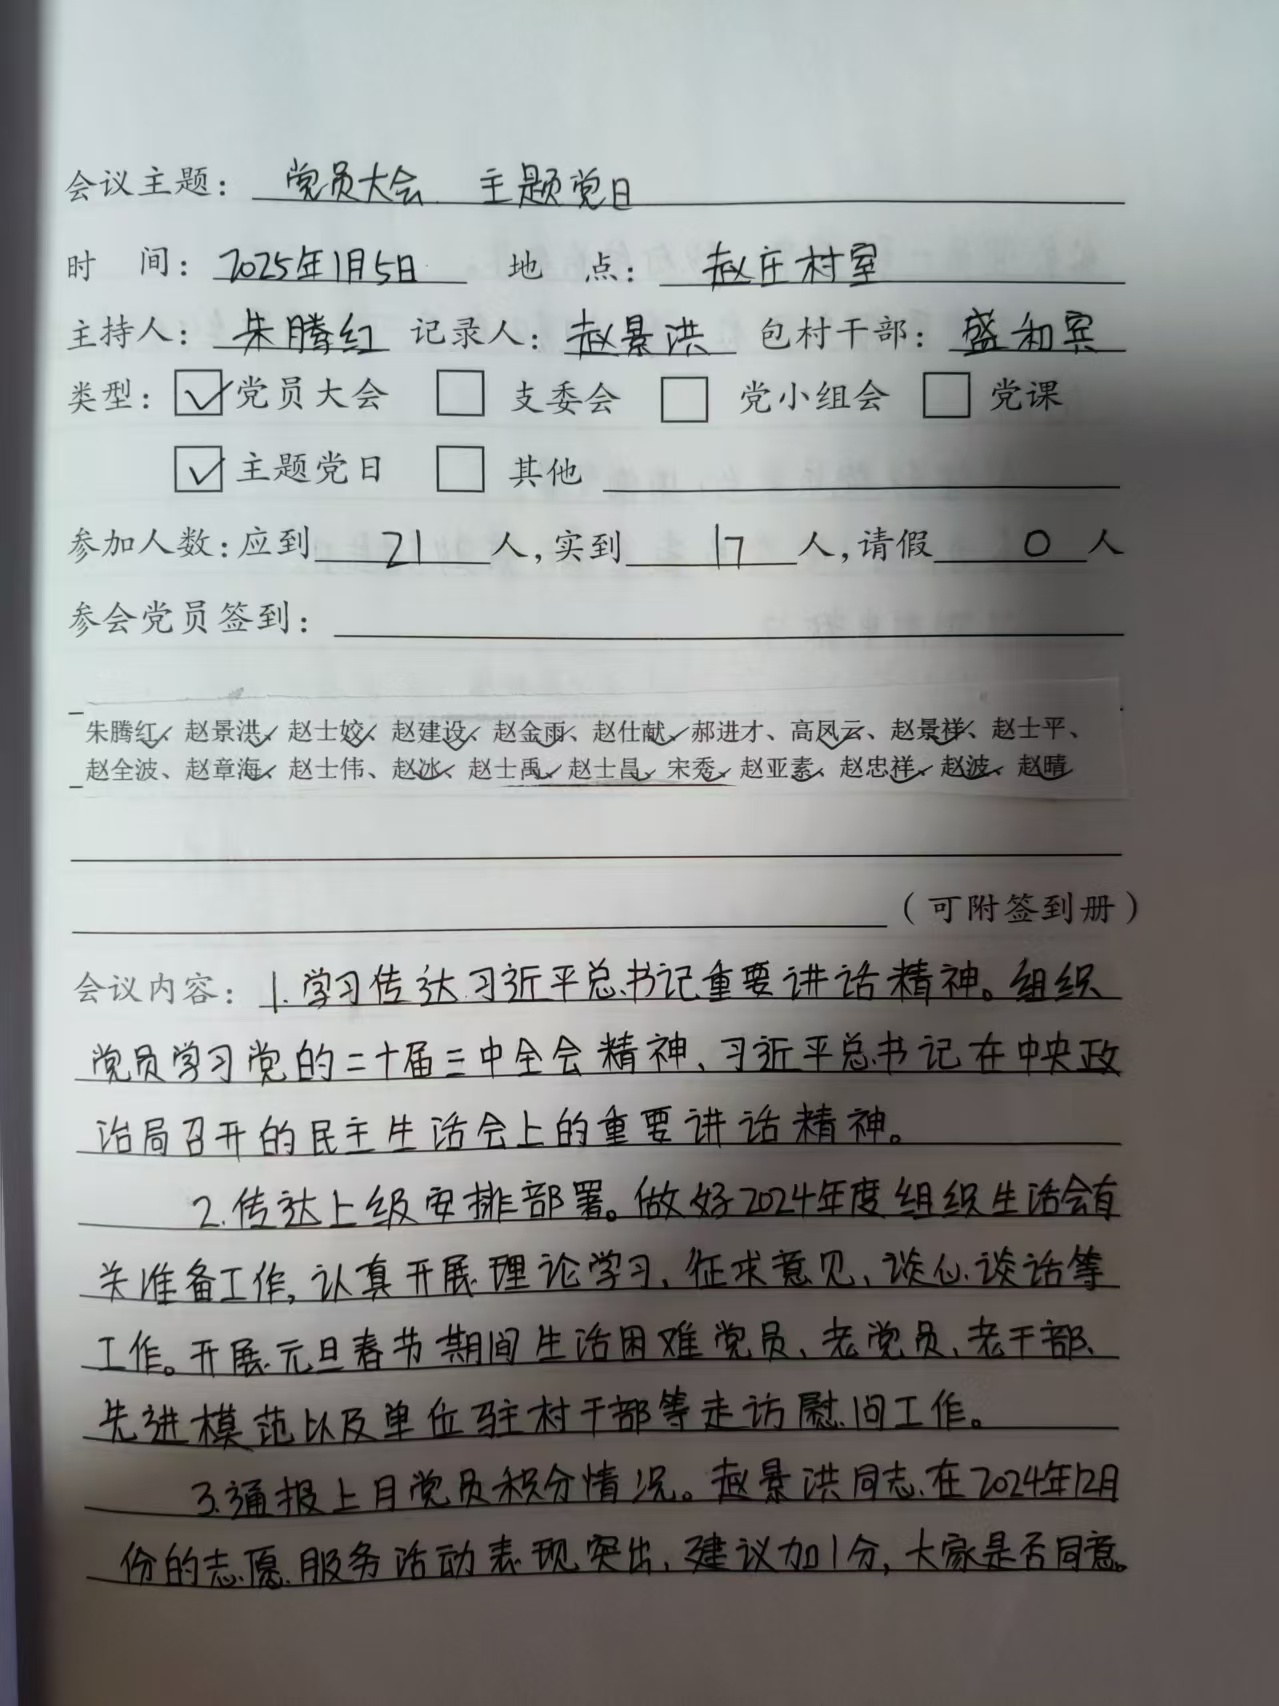 会议主题：党员大会 主题党日
时 间：2025年1月5日 地 点：赵庄村室
主持人：朱腾红 记录人：赵景洪 包村干部：盛和宾
类型：☑党员大会 □ 支委会 □ 党小组会 □ 党课
☑主题党日 □ 其他
参加人数：应到21人，实到17人，请假0人
参会党员签到：
朱腾红✓、赵景洪✓、赵士姣✓、赵建设✓、赵金雨✓、赵仕献✓、郝进才、高凤云✓、赵景祥✓、赵士平、
赵全波、赵章海✓、赵士伟、赵冰✓、赵士禹✓、赵士昌✓、宋秀✓、赵亚素✓、赵忠祥✓、赵波✓、赵晴✓
（可附签到册）
会议内容：1.学习传达习近平总书记重要讲话精神。组织
党员学习党的二十届三中全会精神、习近平总书记在中央政
治局召开的民主生活会上的重要讲话精神。
2.传达上级安排部署。做好2024年度组织生活会有
关准备工作，认真开展理论学习、征求意见、谈心谈话等
工作。开展元旦春节期间生活困难党员、老党员、老干部、
先进模范以及单位驻村干部等走访慰问工作。
3.通报上月党员积分情况。赵景洪同志在2024年12月
份的志愿服务活动表现突出，建议加1分，大家是否同意。